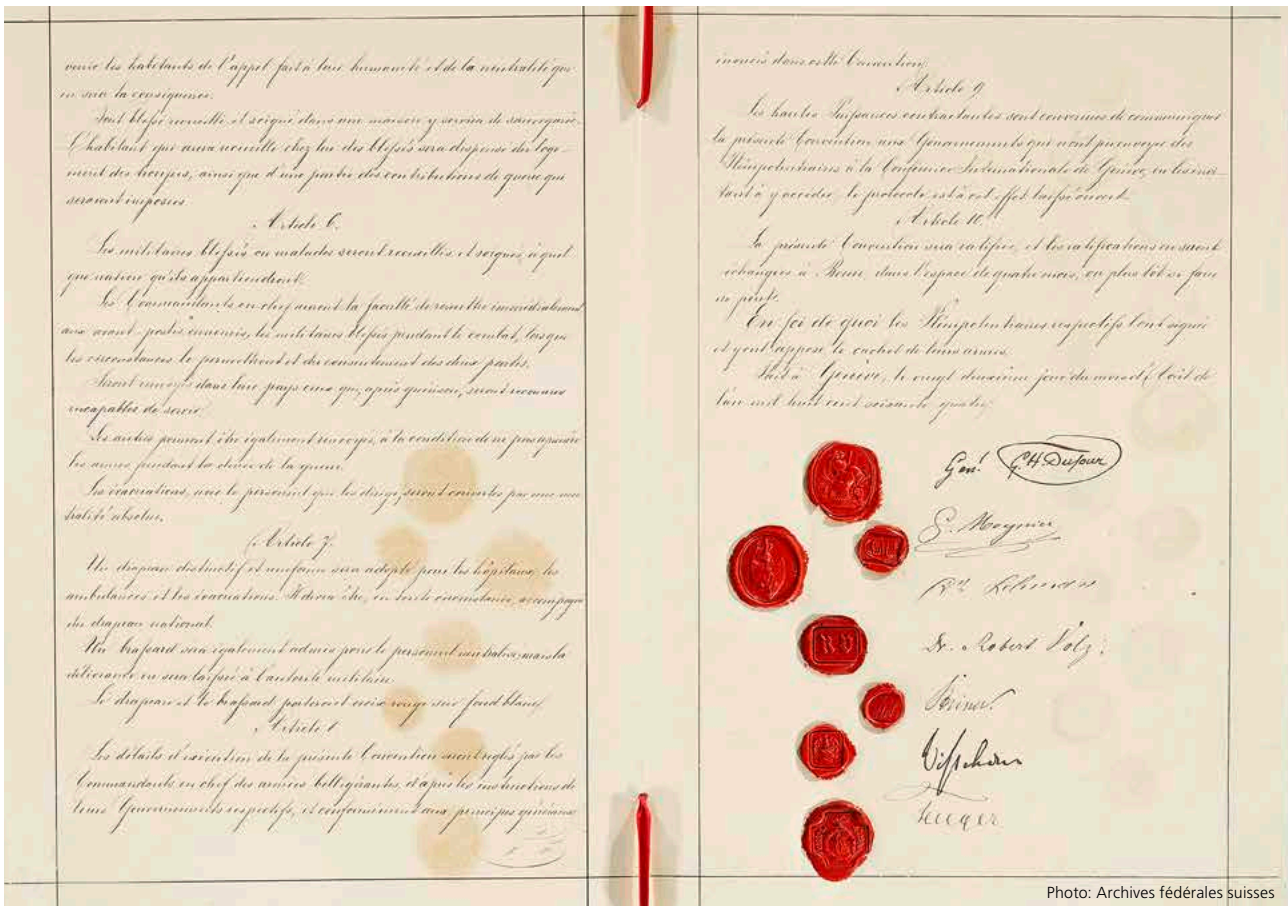 venir les habitants de l'appel fait à leur humanité et de la neutralité qui
en sera la conséquence.
Tout blessé recueilli et soigné dans une maison y servira de sauvegarde.
L'habitant qui aura recueilli chez lui des blessés sera dispensé du loge-
ment des troupes, ainsi que d'une partie des contributions de guerre qui
seraient imposées.
Article 6.
Les militaires blessés ou malades seront recueillis et soignés, à quel
que nation qu'ils appartiendront.
Les Commandants en chef auront la faculté de remettre immédiatement
aux avant-postes ennemis, les militaires blessés pendant le combat, lorsque
les circonstances le permettront et du consentement des deux partis.
Seront renvoyés dans leur pays ceux qui, après guérison, seront reconnus
incapables de servir.
Les autres pourront être également renvoyés, à la condition de ne pas reprendre
les armes pendant la durée de la guerre.
Les évacuations, avec le personnel qui les dirige, seront couvertes par une neu-
tralité absolue.
Article 7.
Un drapeau distinctif et uniforme sera adopté pour les hôpitaux, les
ambulances et les évacuations. Il devra être, en toute circonstance, accompagné
du drapeau national.
Un brassard sera également admis pour le personnel neutralisé, mais la
délivrance en sera laissée à l'autorité militaire.
Le drapeau et le brassard porteront croix rouge sur fond blanc.
Article 8
Les détails d'exécution de la présente Convention seront réglés par les
Commandants en chef des armées belligérantes, d'après les instructions de
leurs Gouvernements respectifs, et conformément aux principes généraux
énoncés dans cette Convention.
Article 9
Les hautes Puissances contractantes sont convenues de communiquer
la présente Convention aux Gouvernements qui n'ont pu envoyer des
Plénipotentiaires à la Conférence Internationale de Genève, en les invi-
tant à y accéder, le protocole est à cet effet laissé ouvert.
Article 10.
La présente Convention sera ratifiée, et les ratifications en seront
échangées à Berne, dans l'espace de quatre mois, ou plus tôt si faire
se peut.
En foi de quoi les Plénipotentiaires respectifs l'ont signée
et y ont apposé le cachet de leurs armes.
Fait à Genève, le vingt deuxième jour du mois d'Août de
l'an mil huit cent soixante-quatre.
Gen! G.H. Dufour
G. Moynier
Dr Lehmann
Dr. Robert Volz.
R V
Steiner.
Visschers
Photo: Archives fédérales suisses